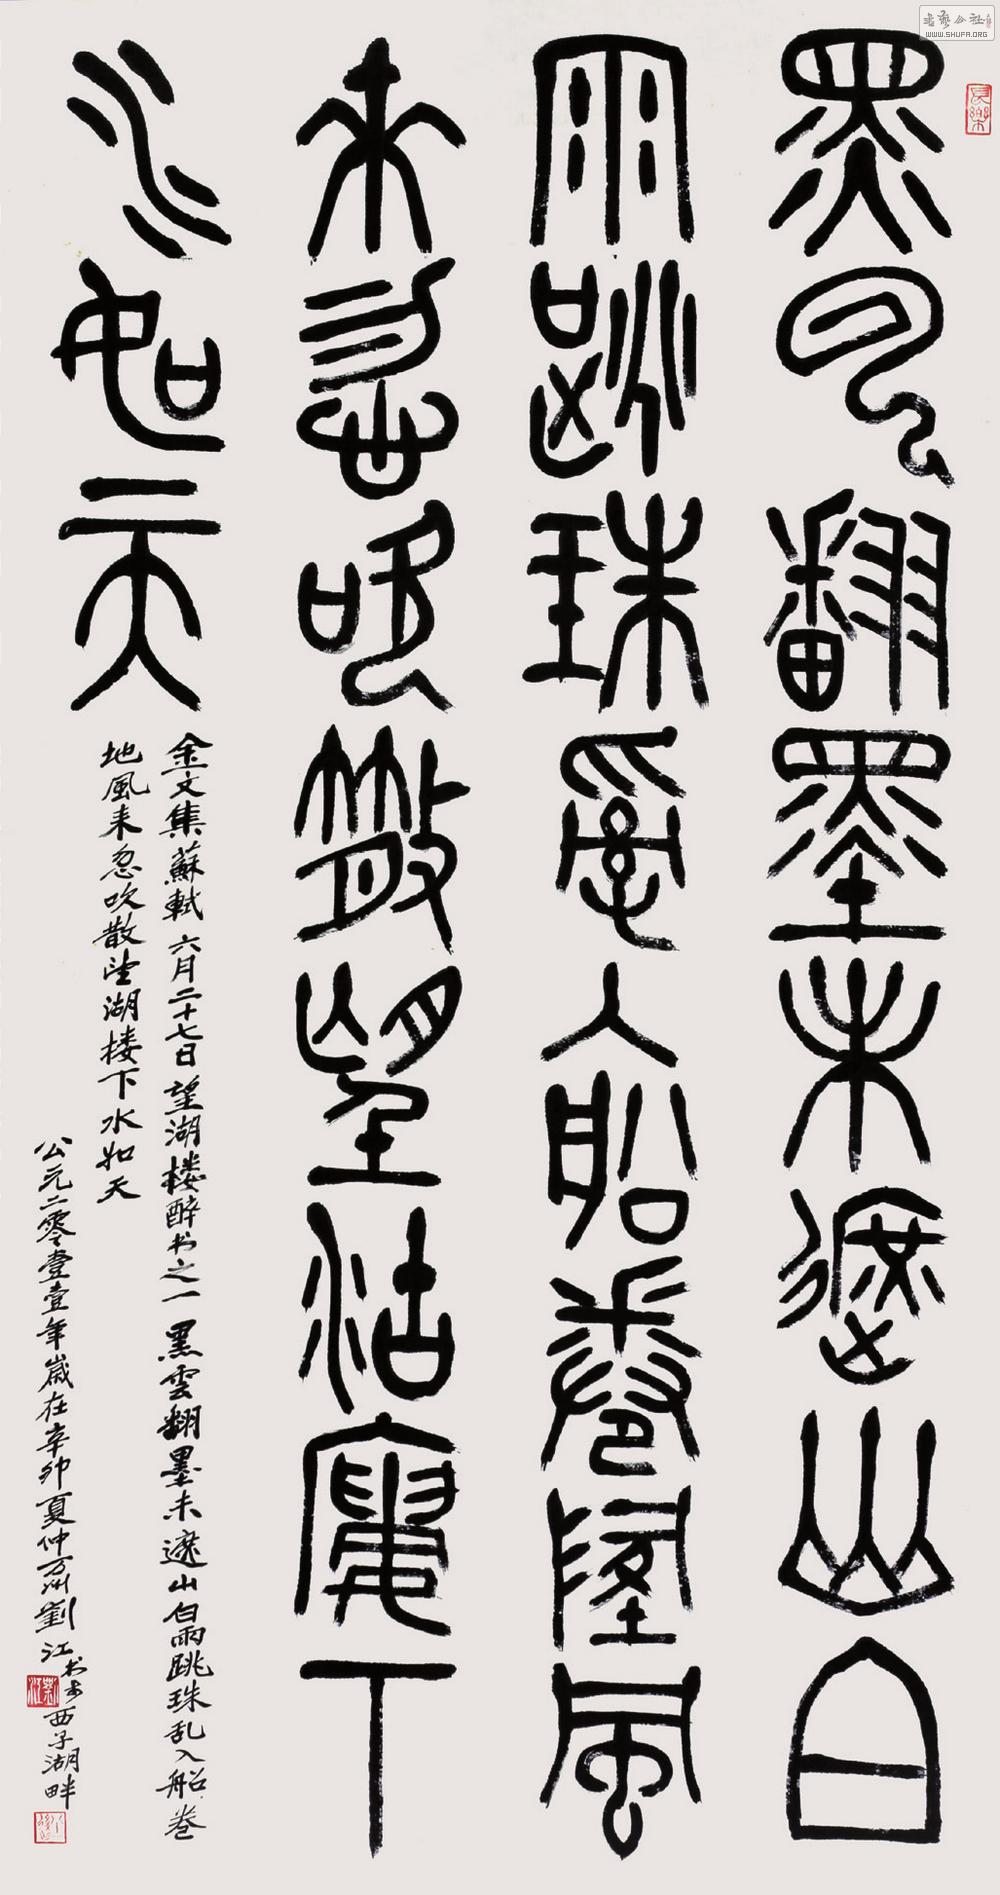 黑云翻墨未遮山白
雨跳珠乱入船卷地风
来忽吹散望湖楼下
水如天
金文集蘇軾六月二十七日望湖楼醉书之一黑雲翻墨未遮山白雨跳珠乱入船卷
地風来忽吹散望湖楼下水如天
公元二零壹壹年歲在辛卯夏仲万州劉江书于西子湖畔
長樂
劉江
书艺公社
WWW.SHUFA.ORG